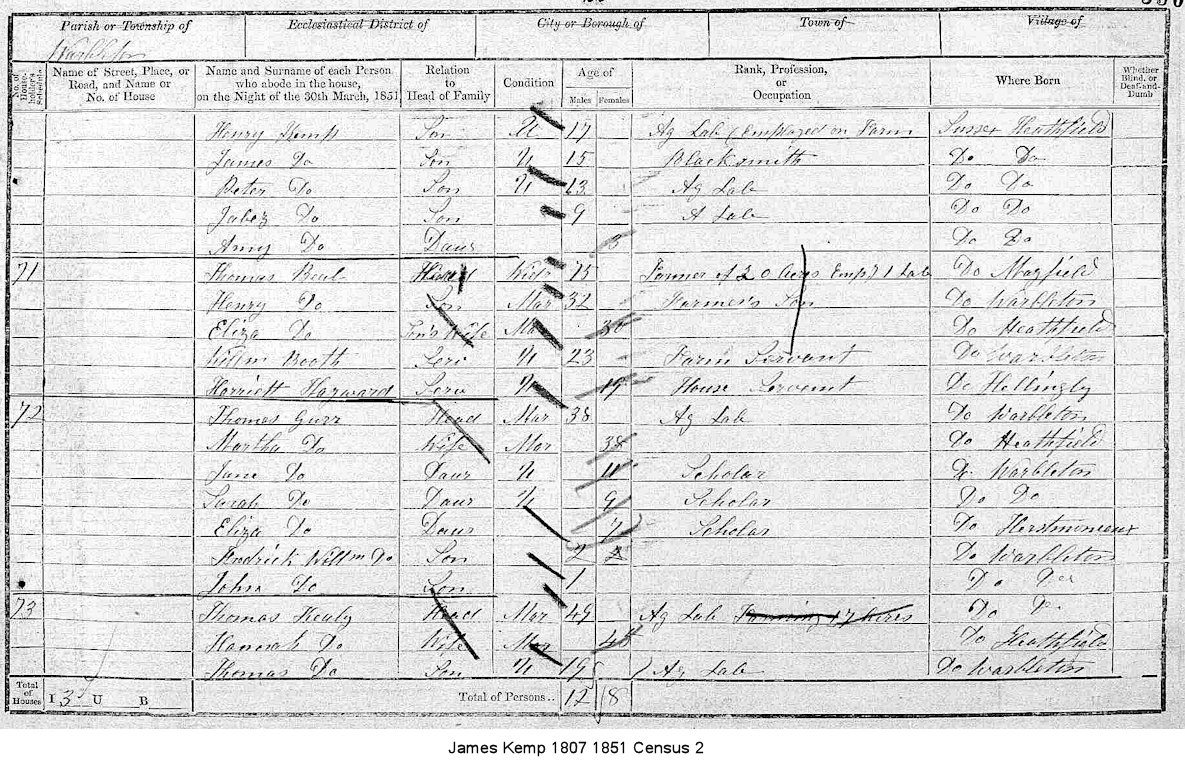 Parish or Township of Ecclesiastical District of City or Borough of Town of Village of
Warbleton
No. of House-holder's Schedule Name of Street, Place, or Road, and Name or No. of House Name and Surname of each Person who abode in the house, on the Night of the 30th March, 1851 Relation to Head of Family Condition Age of Males Females Rank, Profession, or Occupation Where Born Whether Blind, or Deaf-and-Dumb
Henry Kemp Son U 17 Ag Lab (Employed on Farm Sussex Heathfield
James Do Son U 15 Blacksmith Do Do
Peter Do Son U 13 Ag Lab Do Do
Jabez Do Son 9 A Lab Do Do
Amy Do Daur Do Do
71 Thomas Head Widr 75 Farmer of 20 Acres Emp 1 Lab Do Mayfield
Henry Do Son Mar 32 Farmer's Son Do Warbleton
Eliza Do Son's Wife Mar 30 Do Heathfield
Willm Booth Serv U 23 Farm Servant Do Warbleton
Harriett Harword Serv U 19 House Servant Do Hellingly
72 Thomas Gurr Head Mar 38 Ag Lab Do Warbleton
Martha Do Wife Mar 38 Do Heathfield
Jane Do Daur U 11 Scholar Do Warbleton
Sarah Do Daur U 9 Scholar Do Do
Eliza Do Daur 7 Scholar Do Herstmonceux
Fredrick Willm Do Son 2 Do Warbleton
John Do Son 1 Do Do
73 Thomas Head Mar 49 Ag Lab Farming 17 Acres Do Do
Hannah Do Wife Mar 48 Do Heathfield
Thomas Do Son U 19 Ag Lab Do Warbleton
Total of Houses I 3 U B Total of Persons.. 12 8
James Kemp 1807 1851 Census 2